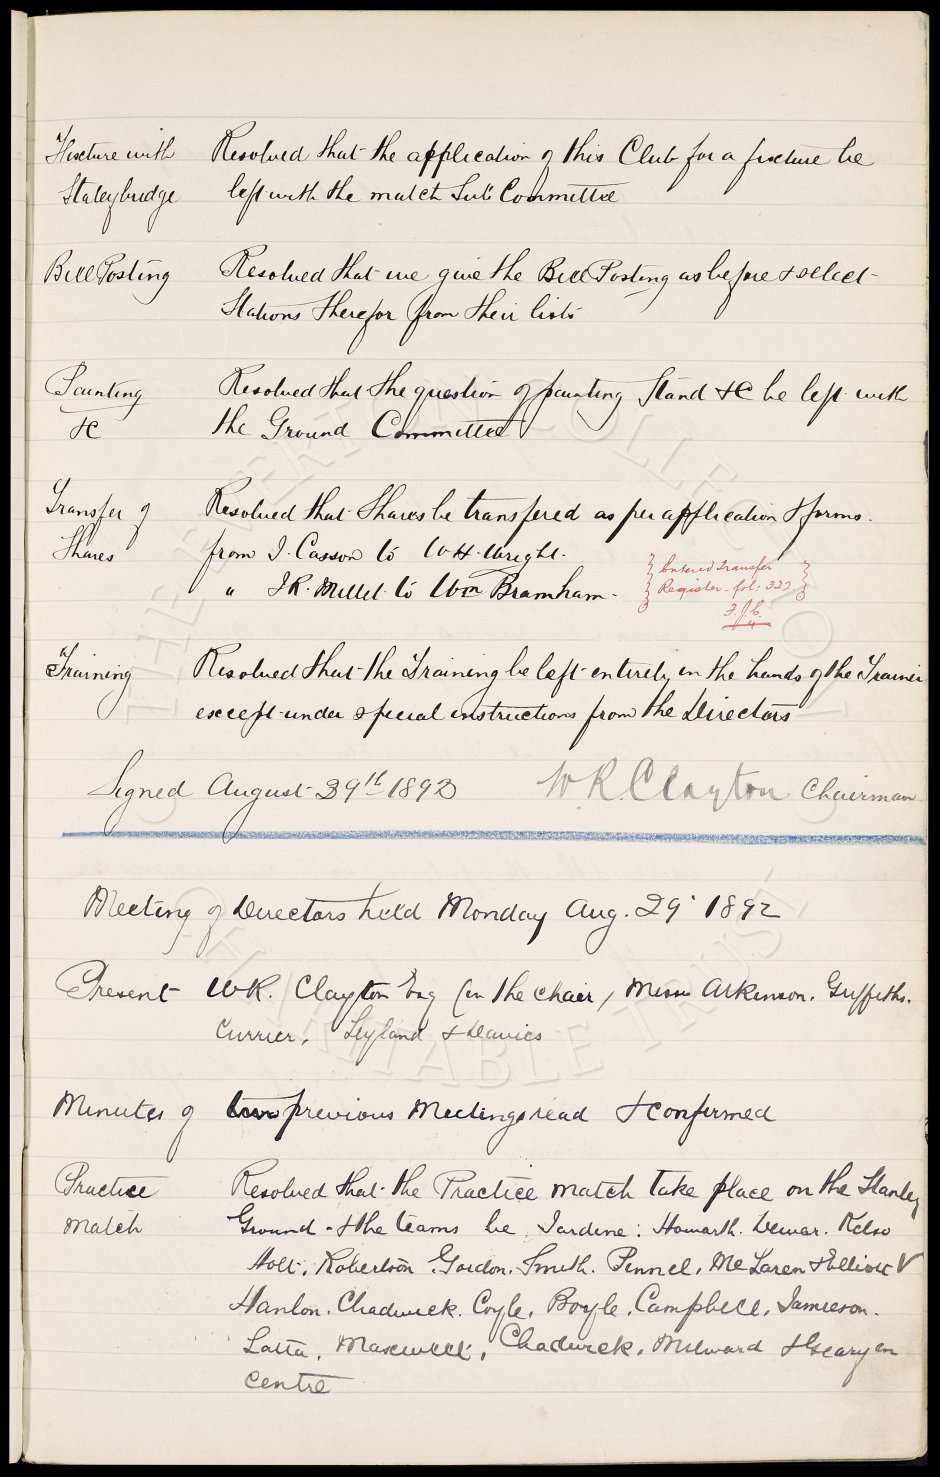 Fixture with Resolved that the application of this Club for a fixture be
Staleybridge left with the match Sub Committee
Bill Posting Resolved that we give the Bill Posting as before & select
Stations therefor from their lists
Painting Resolved that the question of painting Stand &c be left with
&c the Ground Committee
Transfer of Resolved that Shares be transfered as per application & forms.
Shares from J. Casson to W.H. Wright.
" J.R. Millet to Wm Bramham.
Entered Transfer
Register. fol. 322
Training Resolved that the Training be left entirely in the hands of the Trainer
except under special instructions from the Directors
Signed August 29th 1892 W.R. Clayton Chairman
Meeting of Directors held Monday Aug. 29 1892
Present W.R. Clayton Esq (in the chair) Messrs Atkinson. Griffiths.
Currier, Leyland & Davies
Minutes of two previous Meetings read & confirmed
Practice Resolved that the Practice match take place on the Stanley
Match Ground - & the teams be Jardine: Howarth. Dewar. Kelso
Holt. Robertson. Gordon. Smith. Pinnel. McLaren & Elliott V
Hanlon. Chadwick. Coyle. Boyle. Campbell. Jamieson.
Latta, Maxwell, Chadwick, Milward & Geary in
centre
THE EVERTON COLLECTION
CHARITABLE TRUST